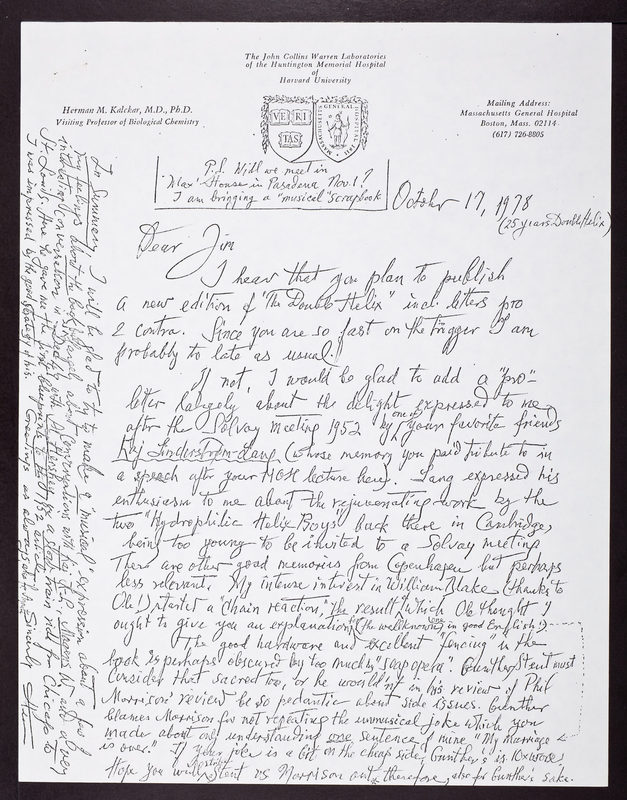 The John Collins Warren Laboratories
of the Huntington Memorial Hospital
of
Harvard University
Herman M. Kalckar, M.D., Ph.D.
Visiting Professor of Biological Chemistry
VE RI
TAS
MASSACHUSETTS GENERAL HOSPITAL
Mailing Address:
Massachusetts General Hospital
Boston, Mass. 02114
(617) 726-8805
P.S. Will we meet in
"Max" House in Pasadena Nov. 1?
I am bringing a "musical" scrapbook
October 17, 1978
(25 years Double Helix)
Dear Jim
I hear that you plan to publish
a new edition of "The Double Helix" incl. letters pro
& contra. Since you are so fast on the trigger I am
probably to late as usual!
If not, I would be glad to add a "pro"-
letter largely about the delight expressed to me
after the Solvay meeting 1952 by one of your favorite friends
Kaj Linderstrøm-Lang (whose memory you paid tribute to in
a speech after your MGH lecture here). Lang expressed his
enthusiasm to me about the rejuvenating work by the
two "Hydrophilic Helix Boys" back there in Cambridge,
being too young to be invited to a Solvay meeting
There are other good memories from Copenhagen but perhaps
less relevant. My intense interest in William Blake (thanks to
Ole!) started a "chain reaction", the result which Ole thought I
ought to give you an explanation, (the wellknown one in good English!).
The good hardware and excellent "fencing" in the
book is perhaps obscured by too much "soap opera". Gunther Stent must
consider that sacred too, or he would not in his review of Phil
Morrison's review be so pedantic about side issues. Gunther
blames Morrison for not repeating the unmusical joke which you
made about only understanding one sentence of mine "My Marriage
is over." If your joke is a bit on the cheap side, Gunther's is 10x worse.
Hope you will Stent vs Morrison out therefore, also for Gunther's sake.
In Summary I will be glad to try to make a musical expression about a few
my feelings about the book, largely about conversation with
interesting conversation in and a very
St. Louis. Here he gave me the first blueprints to that 1953 article.
I was impressed by the good strategy of his. Greetings as always also
Sincerely